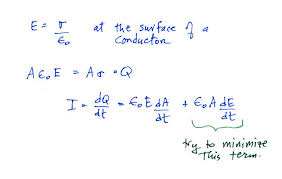 E = σ/ε₀ at the surface of a
conductor
A ε₀ E = A σ = Q
I = dQ/dt = ε₀ E dA/dt + ε₀ A dE/dt
try to minimize
this term.